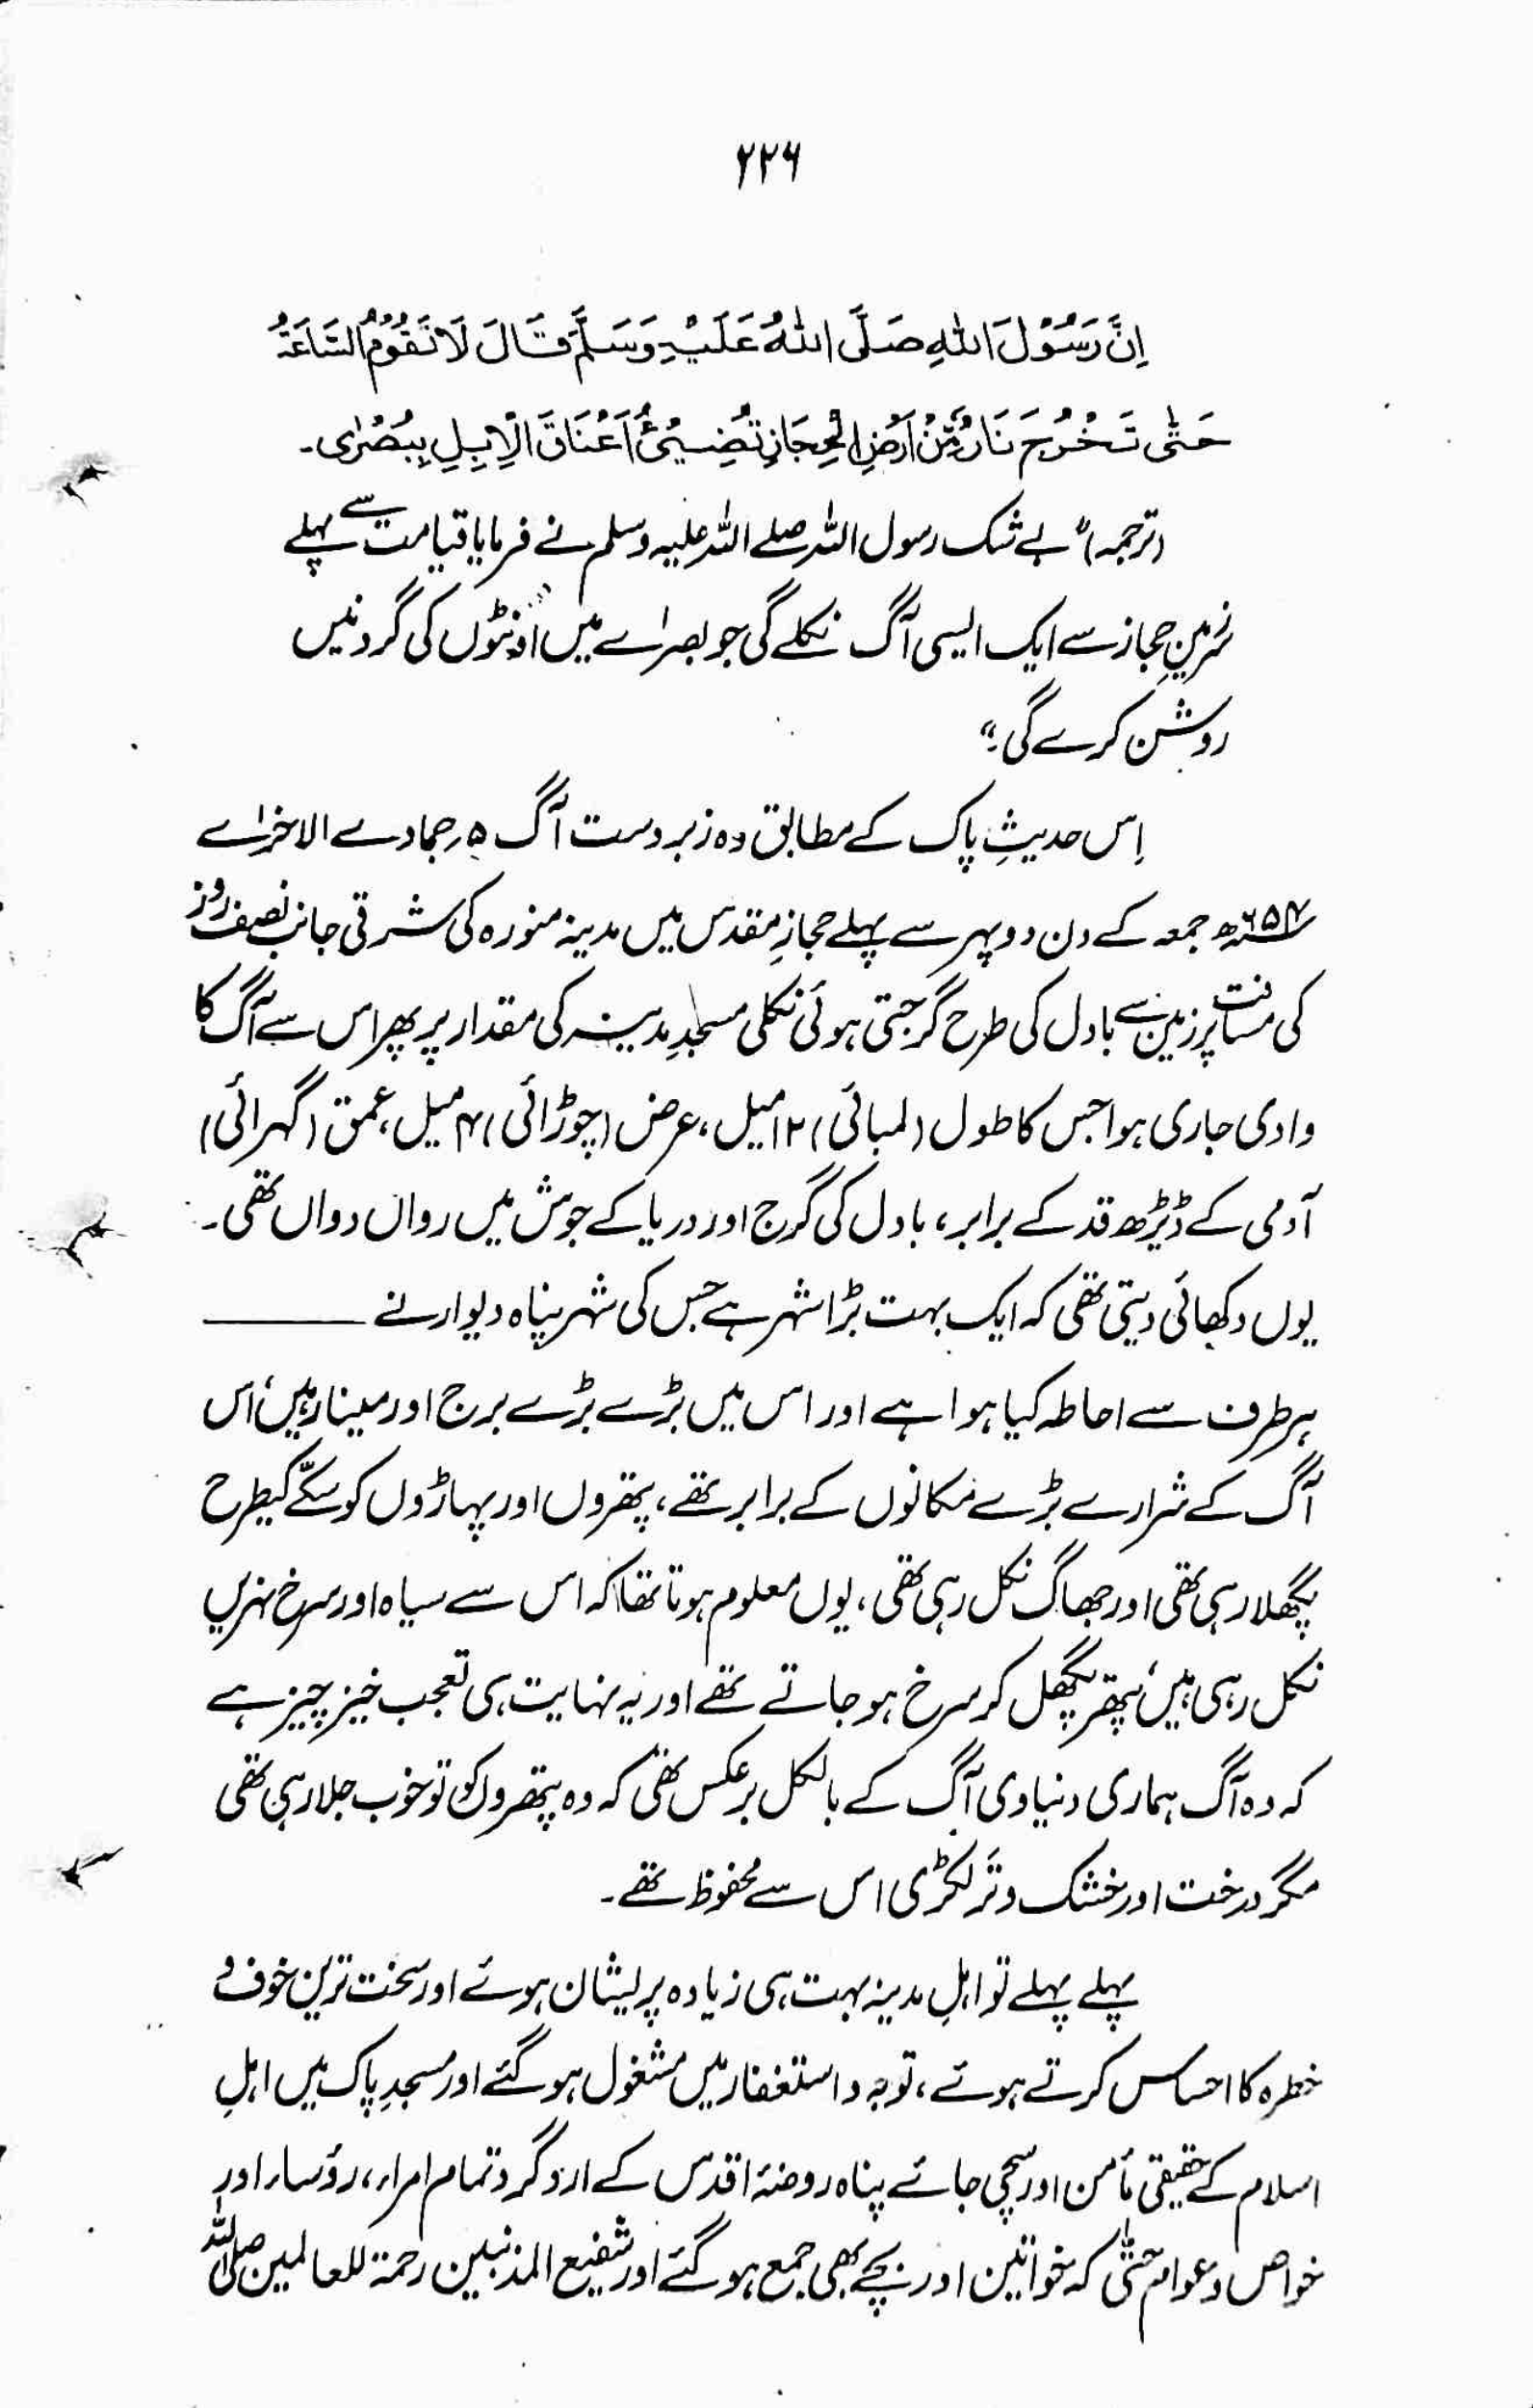 ۲۲۶
اِنَّ رَسُوْلَ اللهِ صَلَّى اللهُ عَلَيْهِ وَسَلَّمَ قَالَ لَا تَقُوْمُ السَّاعَةُ
حَتّٰى تَخْرُجَ نَارٌ مِّنْ اَرْضِ الْحِجَازِ تُضِيْئُ اَعْنَاقَ الْاِبِلِ بِبُصْرٰى۔
(ترجمہ) "بے شک رسول اللہ صلے اللہ علیہ وسلم نے فرمایا قیامت سے پہلے
زمینِ حجاز سے ایک ایسی آگ نکلے گی جو بصرٰے میں اونٹوں کی گردنیں
روشن کرے گی"۔
اِس حدیثِ پاک کے مطابق وہ زبردست آگ ۵ ر جمادے الاخرٰے
۶۵۴ھ جمعہ کے دن دوپہر سے پہلے حجازِ مقدس میں مدینہ منورہ کی شرقی جانب نصف روز
کی مسافت پر زمین سے بادل کی طرح گرجتی ہوئی نکلی مسجدِ مدینہ کی مقدار پر پھر اس سے آگ کا
وادی جاری ہوا جس کا طول (لمبائی) ۱۲ میل، عرض (چوڑائی) ۴ میل، عمق (گہرائی)
آدمی کے ڈیڑھ قد کے برابر، بادل کی گرج اور دریا کے جوش میں رواں دواں تھی۔
یوں دکھائی دیتی تھی کہ ایک بہت بڑا شہر ہے جس کی شہر پناہ دیوار نے ــــــــــ
ہر طرف سے احاطہ کیا ہوا ہے اور اس میں بڑے بڑے برج اور مینار ہیں، اُس
آگ کے شرارے بڑے مکانوں کے برابر تھے، پتھروں اور پہاڑوں کو سکّے کیطرح
پگھلا رہی تھی اور جھاگ نکل رہی تھی، یوں معلوم ہوتا تھا کہ اس سے سیاہ اور سرخ نہریں
نکل رہی ہیں، پتھر پگھل کر سرخ ہو جاتے تھے اور یہ نہایت ہی تعجب خیز چیز ہے
کہ وہ آگ ہماری دنیاوی آگ کے بالکل برعکس تھی کہ وہ پتھروں کو تو خوب جلا رہی تھی
مگر درخت اور خشک و تَر لکڑی اس سے محفوظ تھے۔
پہلے پہلے تو اہلِ مدینہ بہت ہی زیادہ پریشان ہوئے اور سخت ترین خوف و
خطرہ کا احساس کرتے ہوئے، توبہ و استغفار میں مشغول ہو گئے اور مسجدِ پاک میں اہلِ
اسلام کے حقیقی مأمن اور سچی جائے پناہ روضۂ اقدس کے ارد گرد تمام امراء، رؤساء اور
خواص و عوام حتّٰی کہ خواتین اور بچے بھی جمع ہو گئے اور شفیع المذنبین رحمۃ للعالمین صلی اللہ